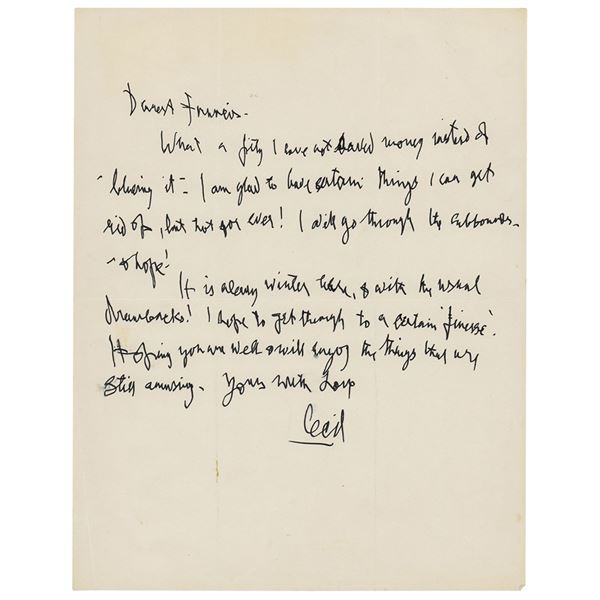 Dearest Francis -
What a pity I have not saved money instead of
"blueing it" - I am glad to have certain things I can get
rid of, but not for ever! I will go through the cupboards -
- & hope!
It is already winter here, & with the usual
drawbacks! I hope to get through to a certain 'finesse'.
Hoping you are well & will enjoy the things that are
still amusing. Yours with Love
Cecil